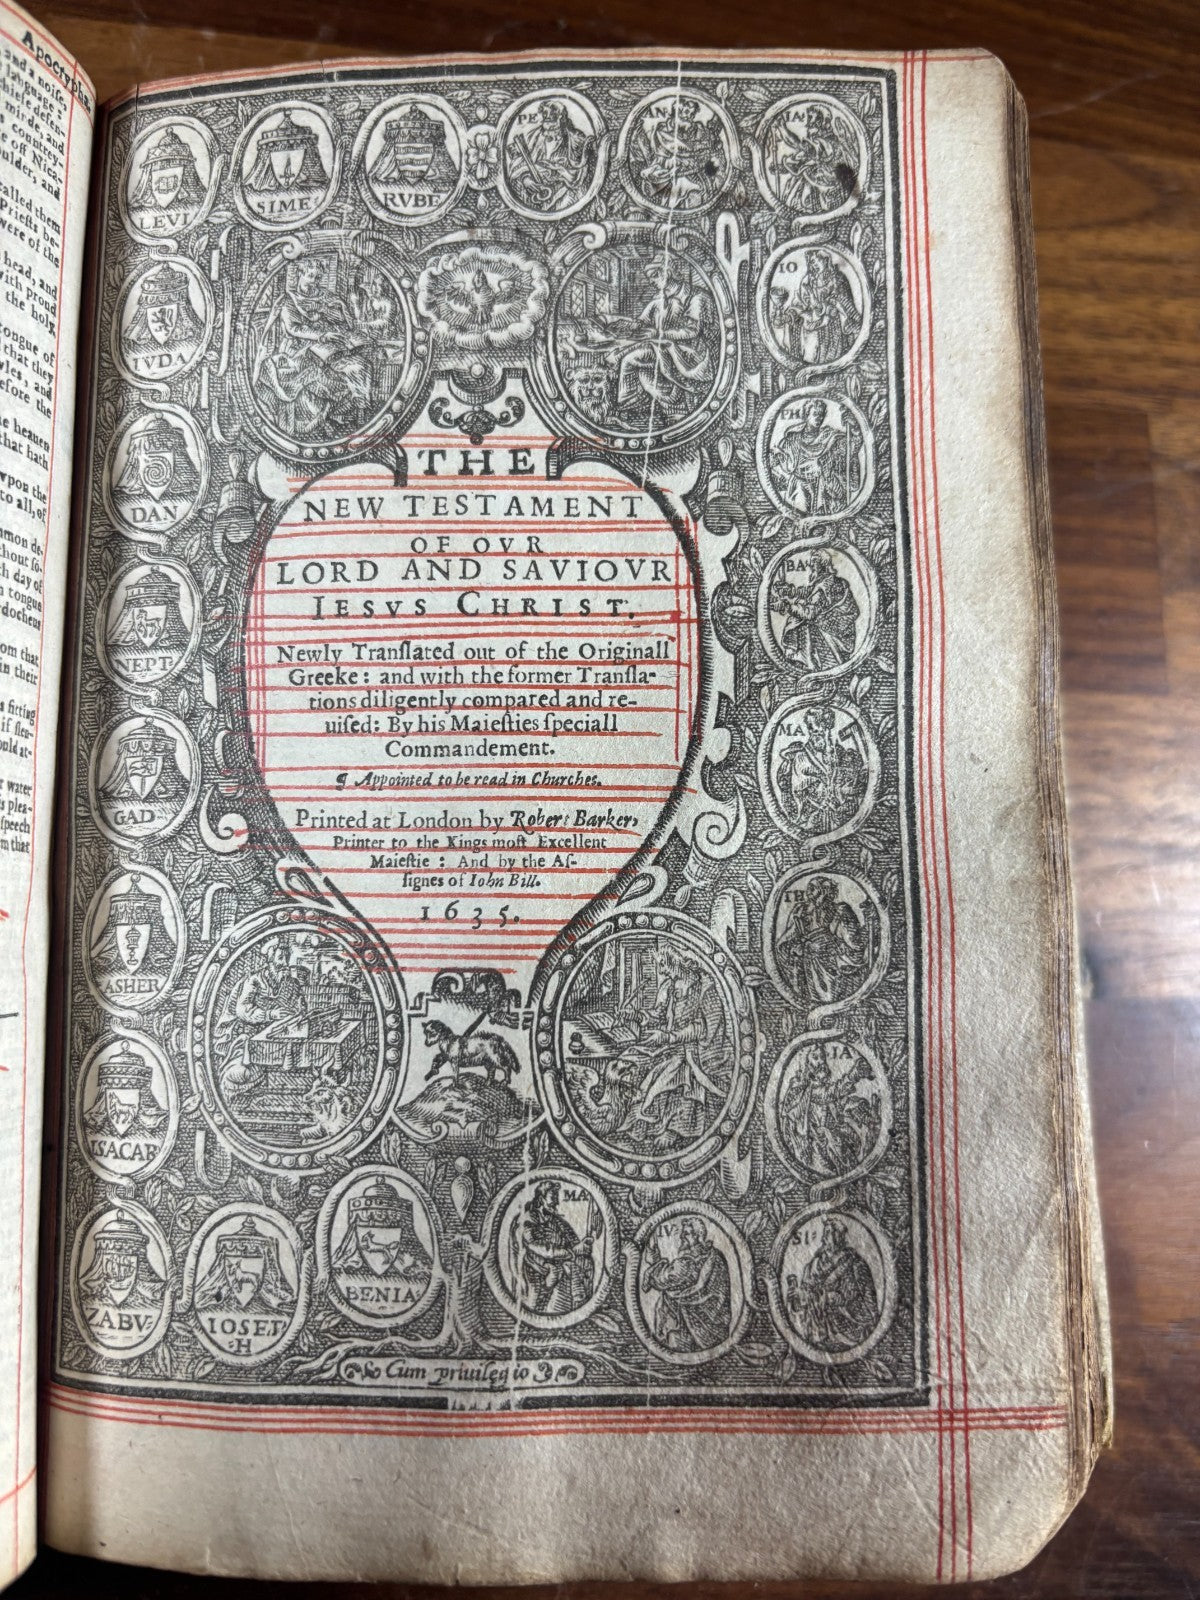 Apocrypha.
and a noise,
language:
defen-
mirde, and
countrey-
of Nica-
and
called them
Priests be-
were of the
head, and
with proud
the holy
tongue of
that they
and
before the
heauen
that hath
vpon the
to all, of
mmon de-
thout so-
th day of
tongue
rdocheus
om that
in their
s fitting
if
ould at-
water
s plea-
speech
m that
LEVI
SIME:
RVBE
PE
AN:
IA:
IVDA
IO
DAN
PH:
NEPT.
BA:
GAD
MA
ASHER
TH
ISACAR
IA
ZABV:
IOSEP
H
BENIA:
MA
IV:
SI:
THE
NEW TESTAMENT
OF OVR
LORD AND SAVIOVR
IESVS CHRIST.
Newly Tranſlated out of the Originall
Greeke: and with the former Tranſla-
tions diligently compared and re-
uiſed: By his Maieſties ſpeciall
Commandement.
¶ Appointed to be read in Churches.
Printed at London by Robert Barker,
Printer to the Kings moſt Excellent
Maieſtie: And by the Aſ-
ſignes of Iohn Bill.
1635.
Cum priuilegio